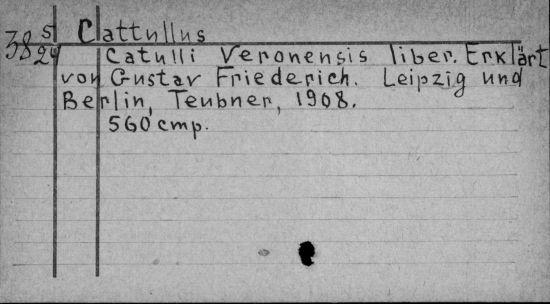 38 5/24 Cattullus
Catulli Veronensis liber. Erklärt
von Gustav Friederich. Leipzig und
Berlin, Teubner, 1908.
560 стр.